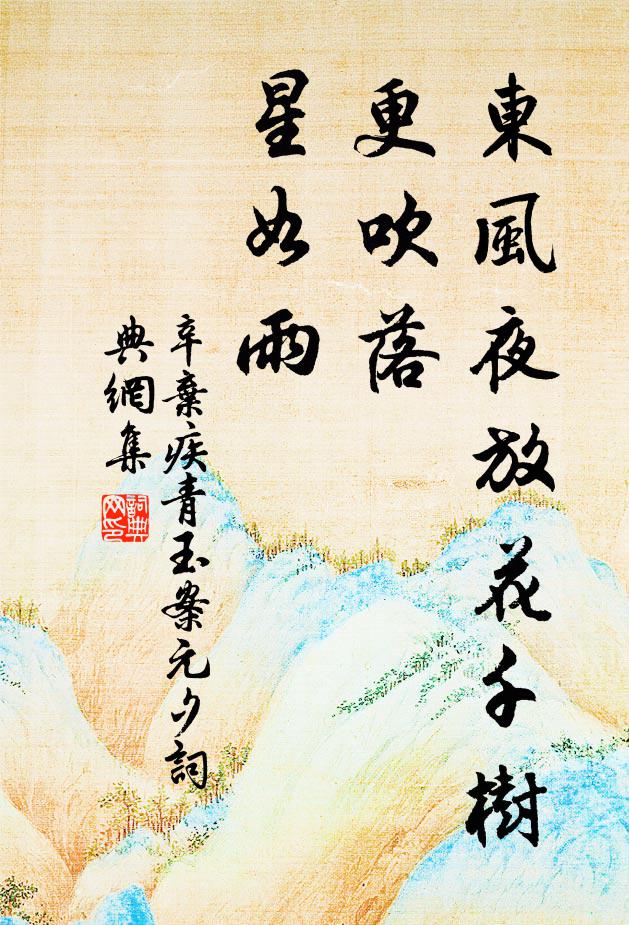 東風夜放花千樹
更吹落
星如雨
辛棄疾青玉案元夕詞
典網集
詞典網印